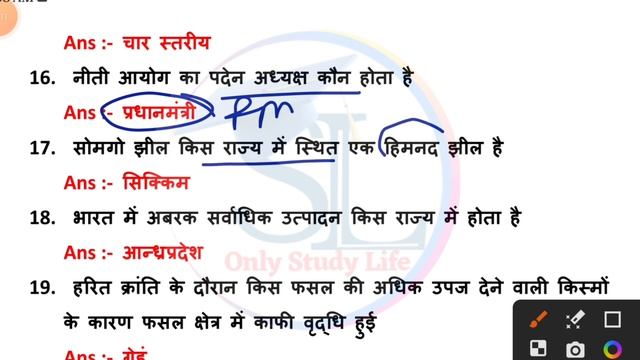 Ans :- चार स्तरीय
16. नीती आयोग का पदेन अध्यक्ष कौन होता है
Ans :- प्रधानमंत्री Pm
17. सोमगो झील किस राज्य में स्थित एक हिमनद झील है
Ans :- सिक्किम
18. भारत में अबरक सर्वाधिक उत्पादन किस राज्य में होता है
Ans :- आन्ध्रप्रदेश
SL
Only Study Life
19. हरित क्रांति के दौरान किस फसल की अधिक उपज देने वाली किस्मों
के कारण फसल क्षेत्र में काफी वृद्धि हुई
Ans :- गेहूं